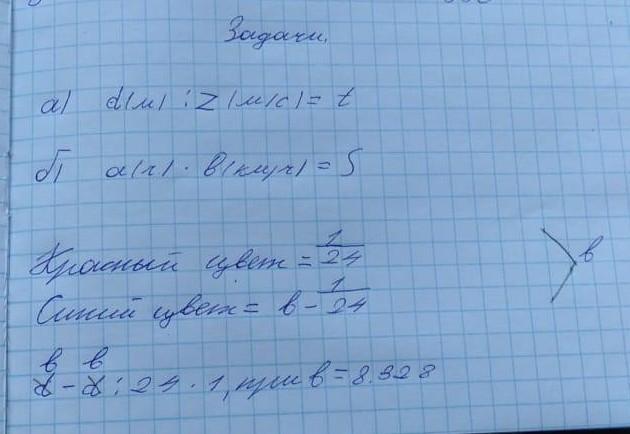 Задачи.
а) d(м) : z(м/с) = t
б) a(ч) · в(км/ч) = S
Красный цвет = 1/24
Синий цвет = в - 1/24
в
в - в : 24 · 1, при в = 8.928